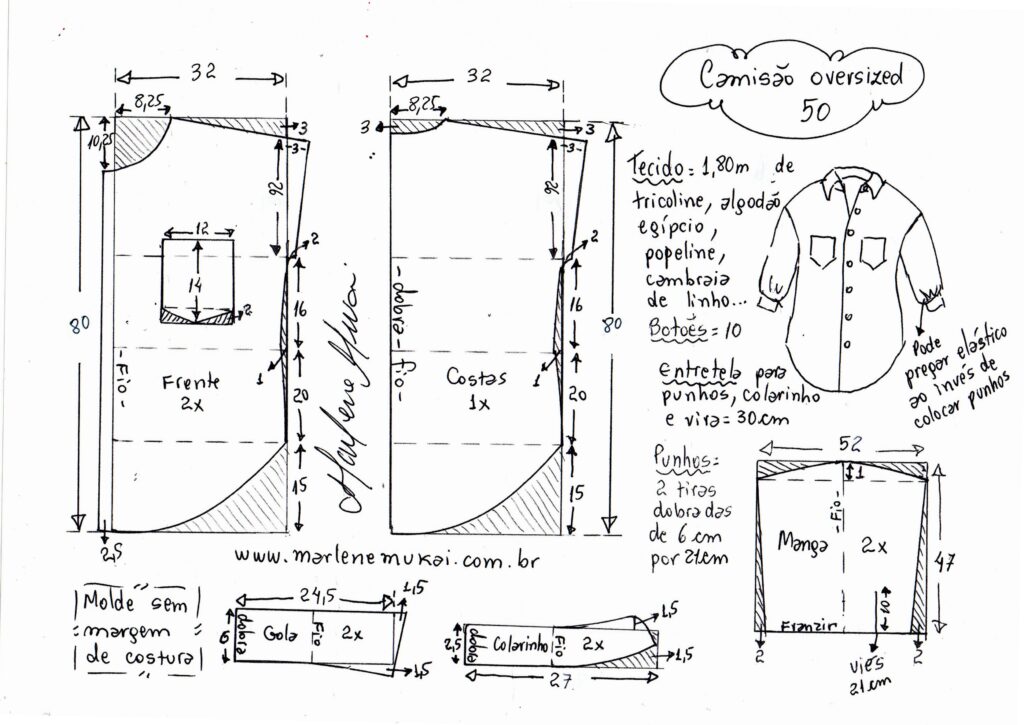 Camisão oversized
50
32
8,25
10,25
3
-3-
26
2
12
14
2
16
80
-Fio-
1
Frente
2x
20
15
2,5
32
8,25
3
3
-3-
26
2
-dobra-fio-
16
80
1
Costas
1x
20
15
Marlene Mukai
www.marlenemukai.com.br
Tecido = 1,80m de
tricoline, algodão
egípcio,
popeline,
cambraia
de linho...
Botões = 10
Entretela para
punhos, colarinho
e vira = 30 cm
Pode
pregar elástico
ao invés de
colocar punhos
Punhos =
2 tiras
dobradas
de 6 cm
por 21cm
52
1
-Fio-
Manga 2x
47
10
Franzir
2
2
viés
21 cm
Molde sem
margem
de costura
24,5
1,5
6
dobra
Gola
Fio
2x
1,5
1,5
2,5
dobra
Colarinho
Fio
2x
1,5
27